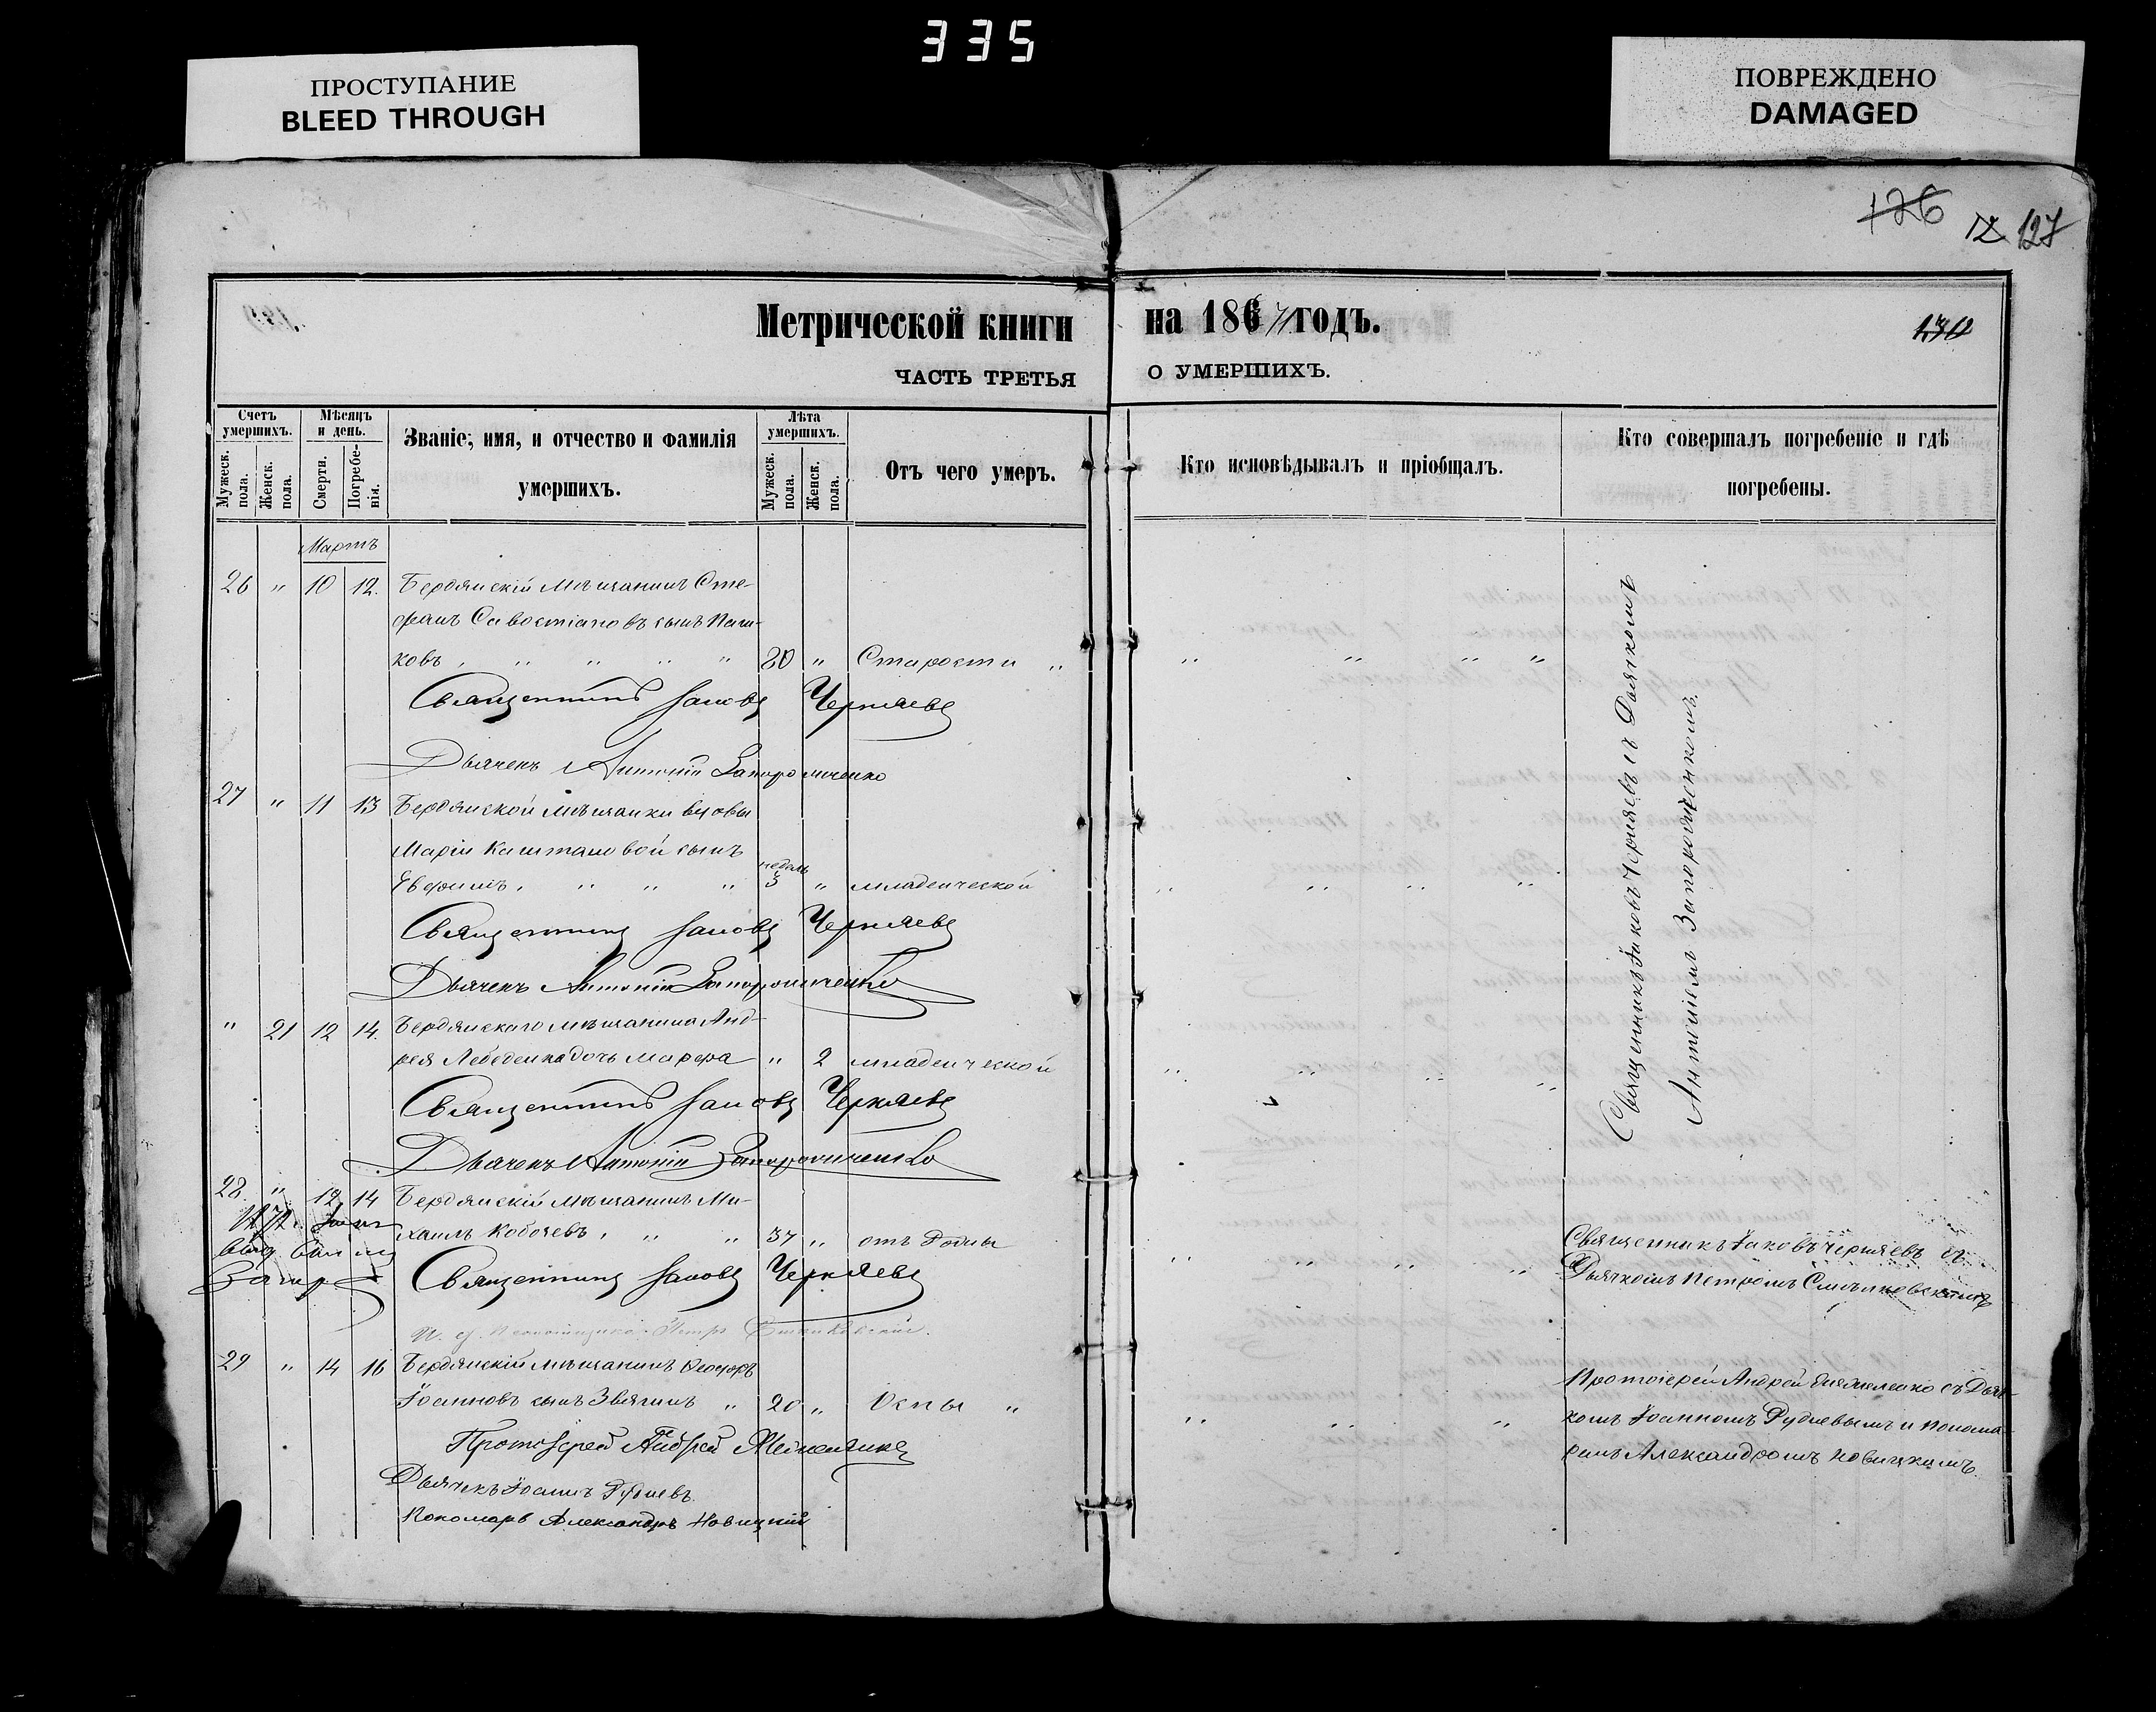 335
ПРОСТУПАНИЕ
BLEED THROUGH
ПОВРЕЖДЕНО
DAMAGED
126 127
Метрической книги на 1867 годъ.
130
ЧАСТЬ ТРЕТЬЯ О УМЕРШИХЪ.
Счетъ умершихъ.
Мужеск. пола.
Женск. пола.
Мѣсяцъ и день.
Смерти.
Погребенія.
Званіе, имя, и отчество и фамилія
умершихъ.
Лѣта умершихъ.
Мужеск. пола.
Женск. пола.
Отъ чего умеръ.
Кто исповѣдывалъ и пріобщалъ.
Кто совершалъ погребеніе и гдѣ
погребены.
Мартъ
26 " 10 12. Бердянскій Мѣщанинъ Сте-
фанъ Савостіановъ сынъ Паш-
ковъ, " " " " 80 " Старости "
Священникъ Іаковъ Черняевъ
Дьячекъ Антоній Запорожченко
27 " 11 13 Бердянской мѣщанки вдовы
Маріи Каштановой сынъ
Евфимъ, " " " недѣль 3 " младенческой
Священникъ Іаковъ Черняевъ
Дьячекъ Антоній Запорожченко
" 21 12 14. Бердянскаго мѣщанина Анд-
рея Лебеденка дочь Марфа " 2 младенческой
Священникъ Іаковъ Черняевъ
Дьячекъ Антоній Запорожченко
Священникъ Іаковъ Черняевъ съ Дьячкомъ
Антоніемъ Запорожченкомъ.
28. " 12 14 Бердянскій мѣщанинъ Ми-
хаилъ Кобочевъ, " " 37 " отъ
Священникъ Іаковъ Черняевъ
Священникъ Іаковъ Черняевъ съ
Дьячкомъ Петромъ
Петръ
29 " 14 16 Бердянскій мѣщанинъ Ѳеодоръ
Іоанновъ сынъ Звягинъ " 20 " Оспы "
Протоіерей Андрей
Дьячекъ Іоаннъ Рудневъ
Пономарь Александръ Новицкій
Протоіерей Андрей съ Дьяч-
комъ Іоанномъ Рудневымъ и Понома-
ремъ Александромъ Новицкимъ.